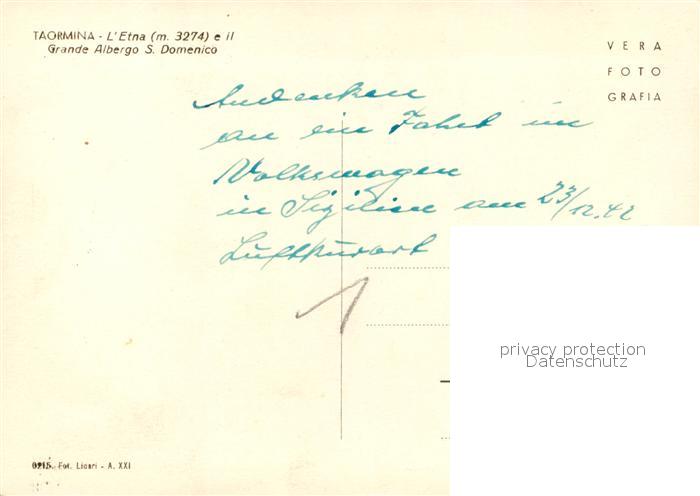 TAORMINA - L'Etna (m. 3274) e il
Grande Albergo S. Domenico
VERA
FOTO
GRAFIA
Andenken
an ein Fahrt im
Volkswagen
in Sizilien am 23/12.42
Luftkurort
privacy protection
Datenschutz
0915. Fot. Licari - A. XXI